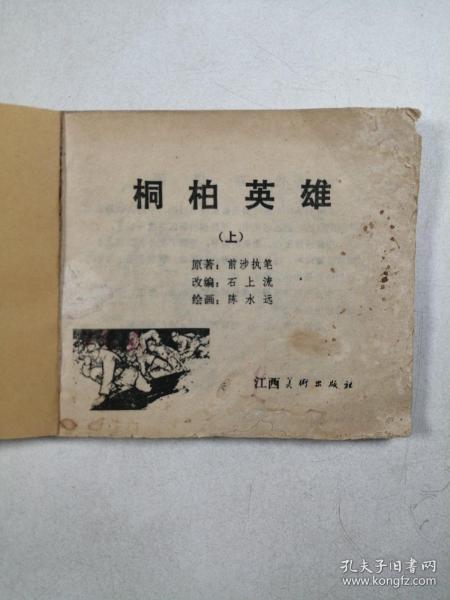 桐柏英雄
(上)
原著：前涉执笔
改编：石上流
绘画：陈水远
江西美术出版社
孔夫子旧书网
www.kongfz.com